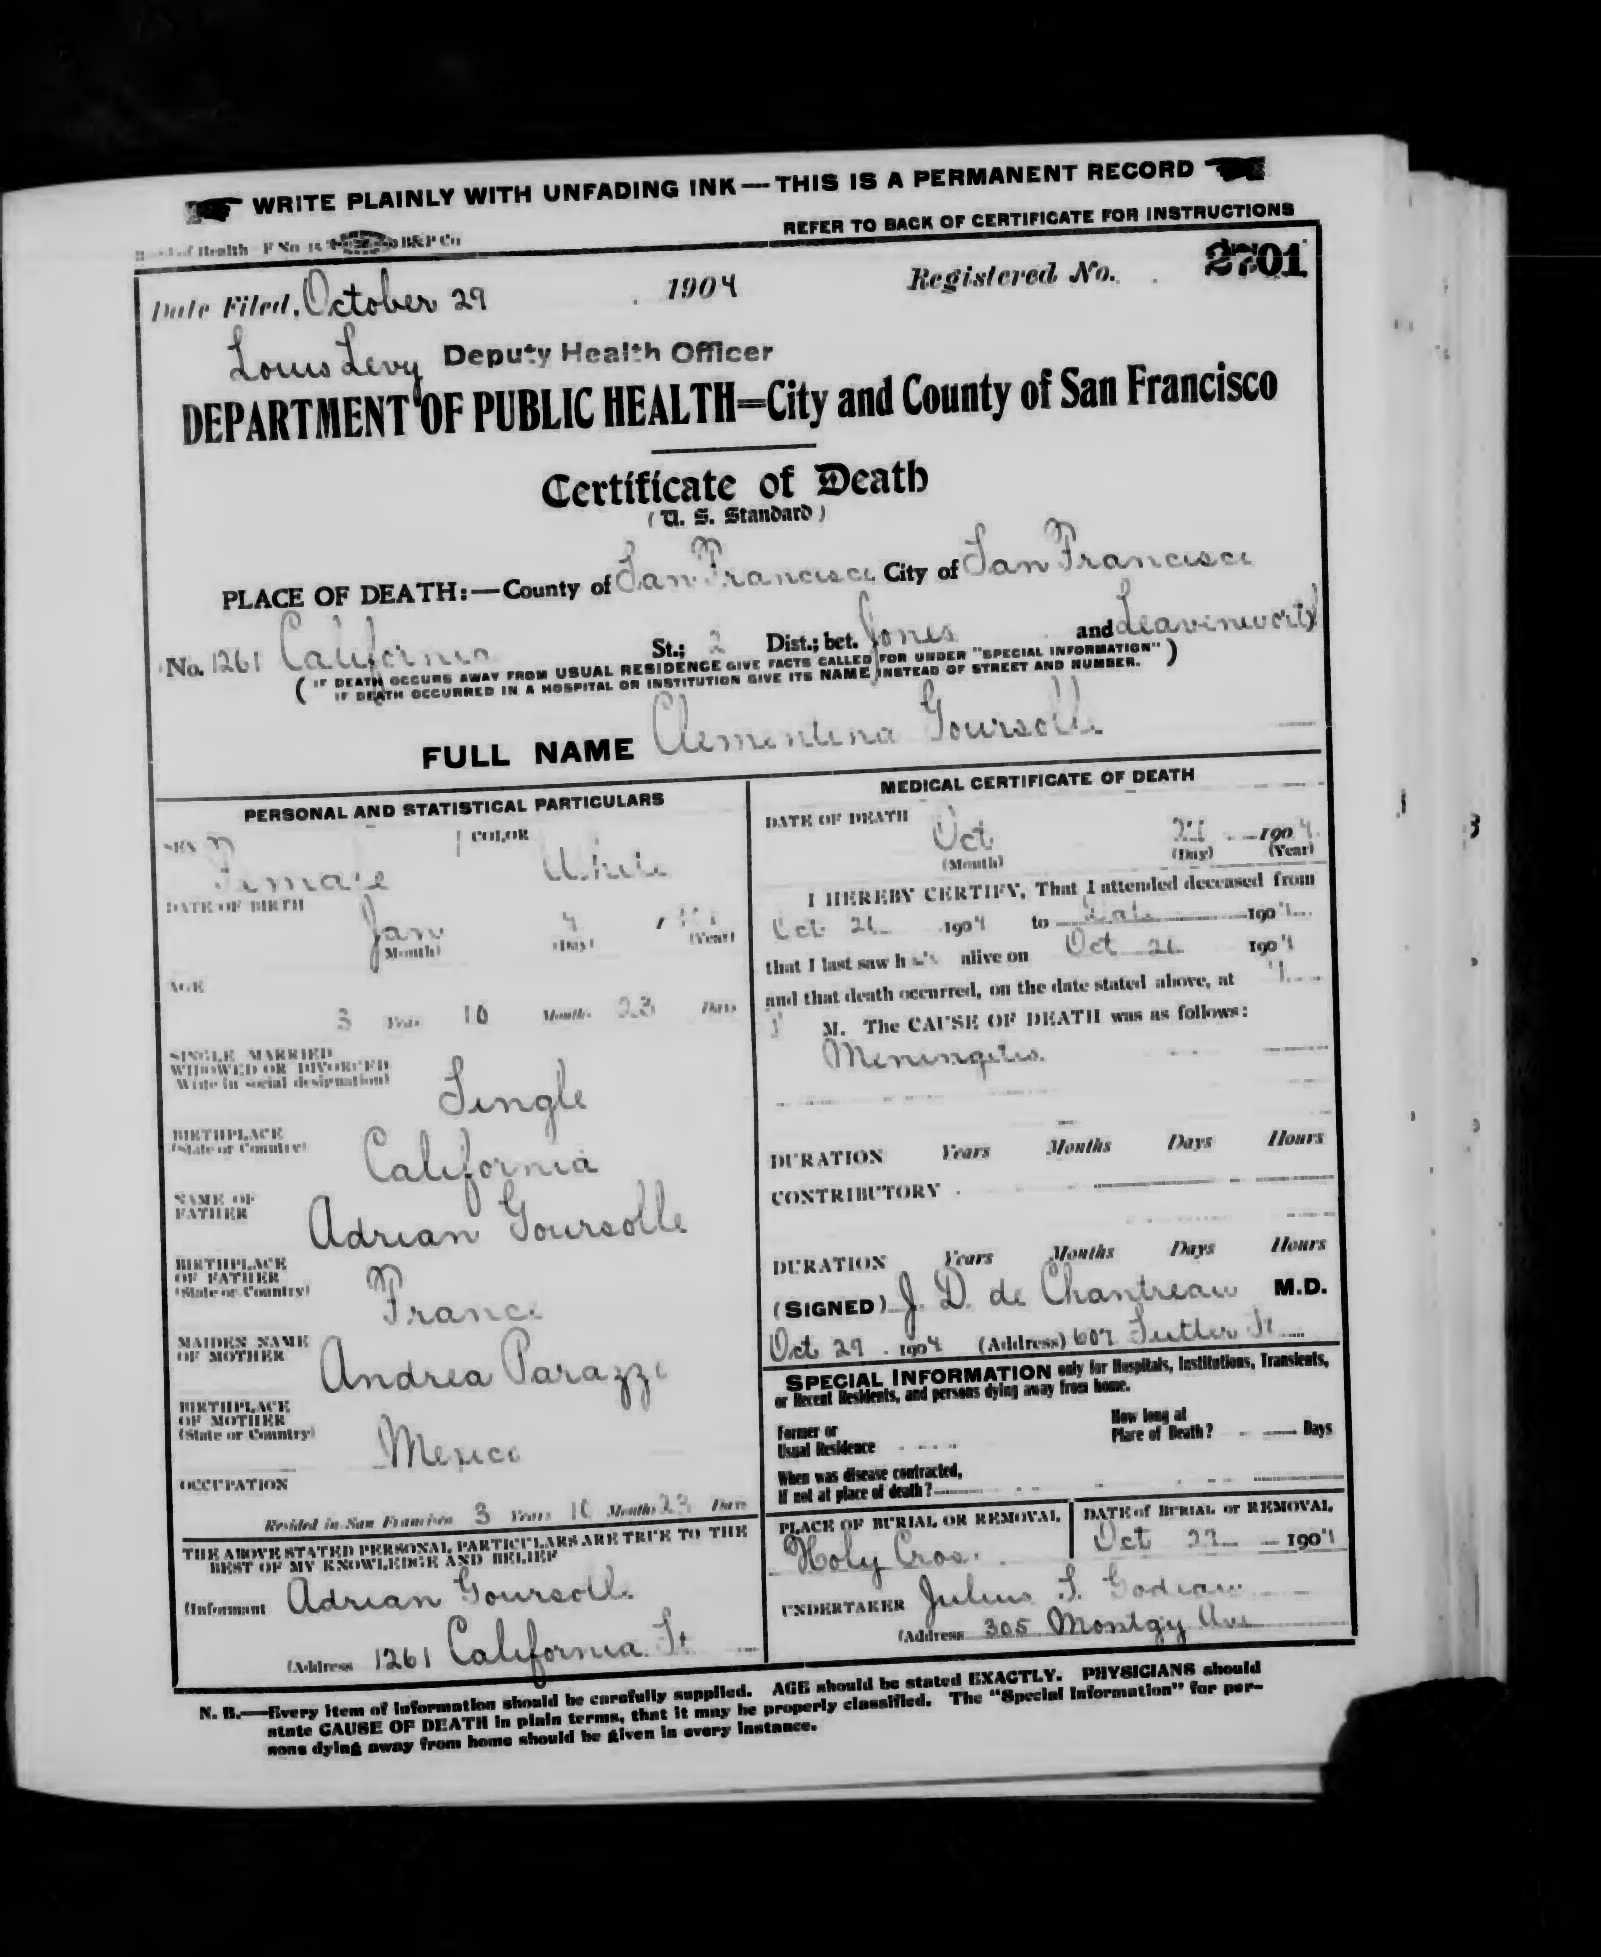 WRITE PLAINLY WITH UNFADING INK — THIS IS A PERMANENT RECORD
REFER TO BACK OF CERTIFICATE FOR INSTRUCTIONS
of Health F No B&P Co
Date Filed, October 29 1904 Registered No. 2701
Louis Levy Deputy Health Officer
DEPARTMENT OF PUBLIC HEALTH=City and County of San Francisco
Certificate of Death
(U. S. Standard)
PLACE OF DEATH:—County of San Francisco City of San Francisco
No. 1261 California St.; 2 Dist.; bet. Jones and Leavenworth
(IF DEATH OCCURS AWAY FROM USUAL RESIDENCE GIVE FACTS CALLED FOR UNDER "SPECIAL INFORMATION"
IF DEATH OCCURRED IN A HOSPITAL OR INSTITUTION GIVE ITS NAME INSTEAD OF STREET AND NUMBER.)
FULL NAME Clementina Goursolle
PERSONAL AND STATISTICAL PARTICULARS
SEX Female
COLOR White
DATE OF BIRTH
Jan 4
(Month) (Day) (Year)
AGE
3 Years 10 Months 23 Days
SINGLE MARRIED
WIDOWED OR DIVORCED
Write in social designation)
Single
BIRTHPLACE
(State or Country)
California
NAME OF
FATHER
Adrian Goursolle
BIRTHPLACE
OF FATHER
(State or Country)
France
MAIDEN NAME
OF MOTHER
Andrea Parazzi
BIRTHPLACE
OF MOTHER
(State or Country)
Mexico
OCCUPATION
Resided in San Francisco 3 Years 10 Months 23 Days
THE ABOVE STATED PERSONAL PARTICULARS ARE TRUE TO THE
BEST OF MY KNOWLEDGE AND BELIEF
(Informant Adrian Goursolle
(Address 1261 California St
MEDICAL CERTIFICATE OF DEATH
DATE OF DEATH
Oct 1904
(Month) (Day) (Year)
I HEREBY CERTIFY, That I attended deceased from
Oct 26 1904 to 1904
that I last saw h alive on Oct 26 1904
and that death occurred, on the date stated above, at
M. The CAUSE OF DEATH was as follows:
Meningitis
DURATION Years Months Days Hours
CONTRIBUTORY
DURATION Years Months Days Hours
(SIGNED) J. D. de Chantreau M.D.
Oct 29 1904 (Address) 607 Sutter St
SPECIAL INFORMATION only for Hospitals, Institutions, Transients,
or Recent Residents, and persons dying away from home.
Former or
Usual Residence
How long at
Place of Death? Days
When was disease contracted,
If not at place of death?
PLACE OF BURIAL OR REMOVAL
Holy Cross
DATE of BURIAL or REMOVAL
Oct 1904
UNDERTAKER Julius S. Godeau
(Address 305 Montgy Ave
N. B.—Every item of information should be carefully supplied. AGE should be stated EXACTLY. PHYSICIANS should
state CAUSE OF DEATH in plain terms, that it may be properly classified. The "Special Information" for per-
sons dying away from home should be given in every instance.